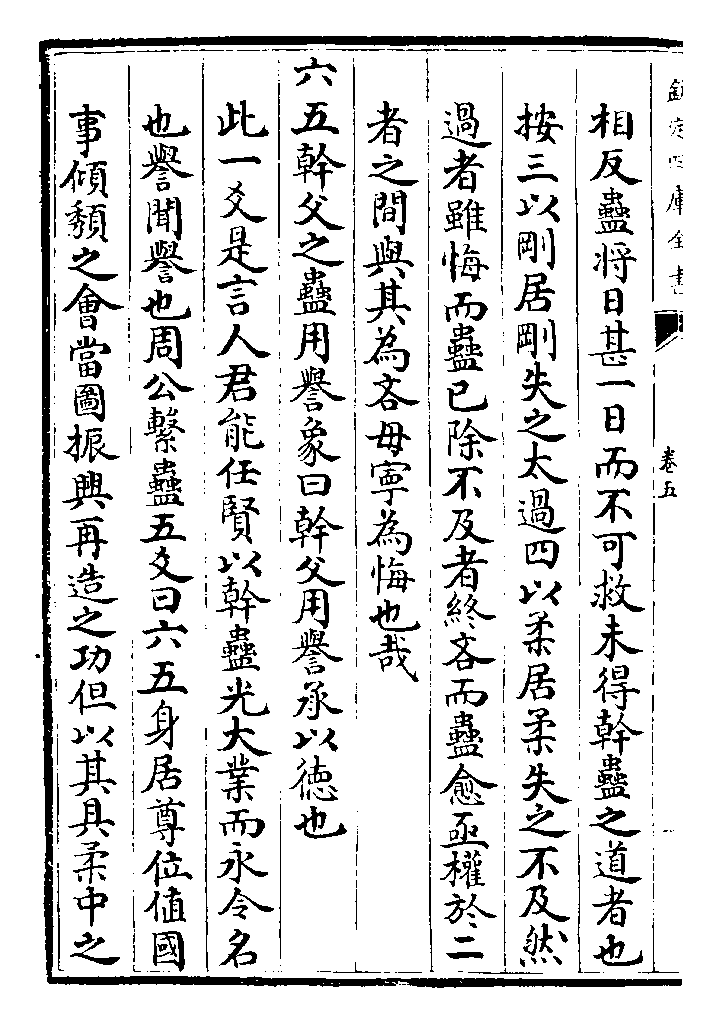 欽定四庫全書
卷五
相反蠱将日甚一日而不可救未得幹蠱之道者也
按三以剛居剛失之太過四以柔居柔失之不及然
過者雖悔而蠱已除不及者終吝而蠱愈亟權於二
者之間與其為吝毋寧為悔也哉
六五幹父之蠱用譽象曰幹父用譽承以德也
此一爻是言人君能任賢以幹蠱光大業而永令名
也譽聞譽也周公繫蠱五爻曰六五身居尊位值國
事傾頽之會當圖振興再造之功但以其具柔中之